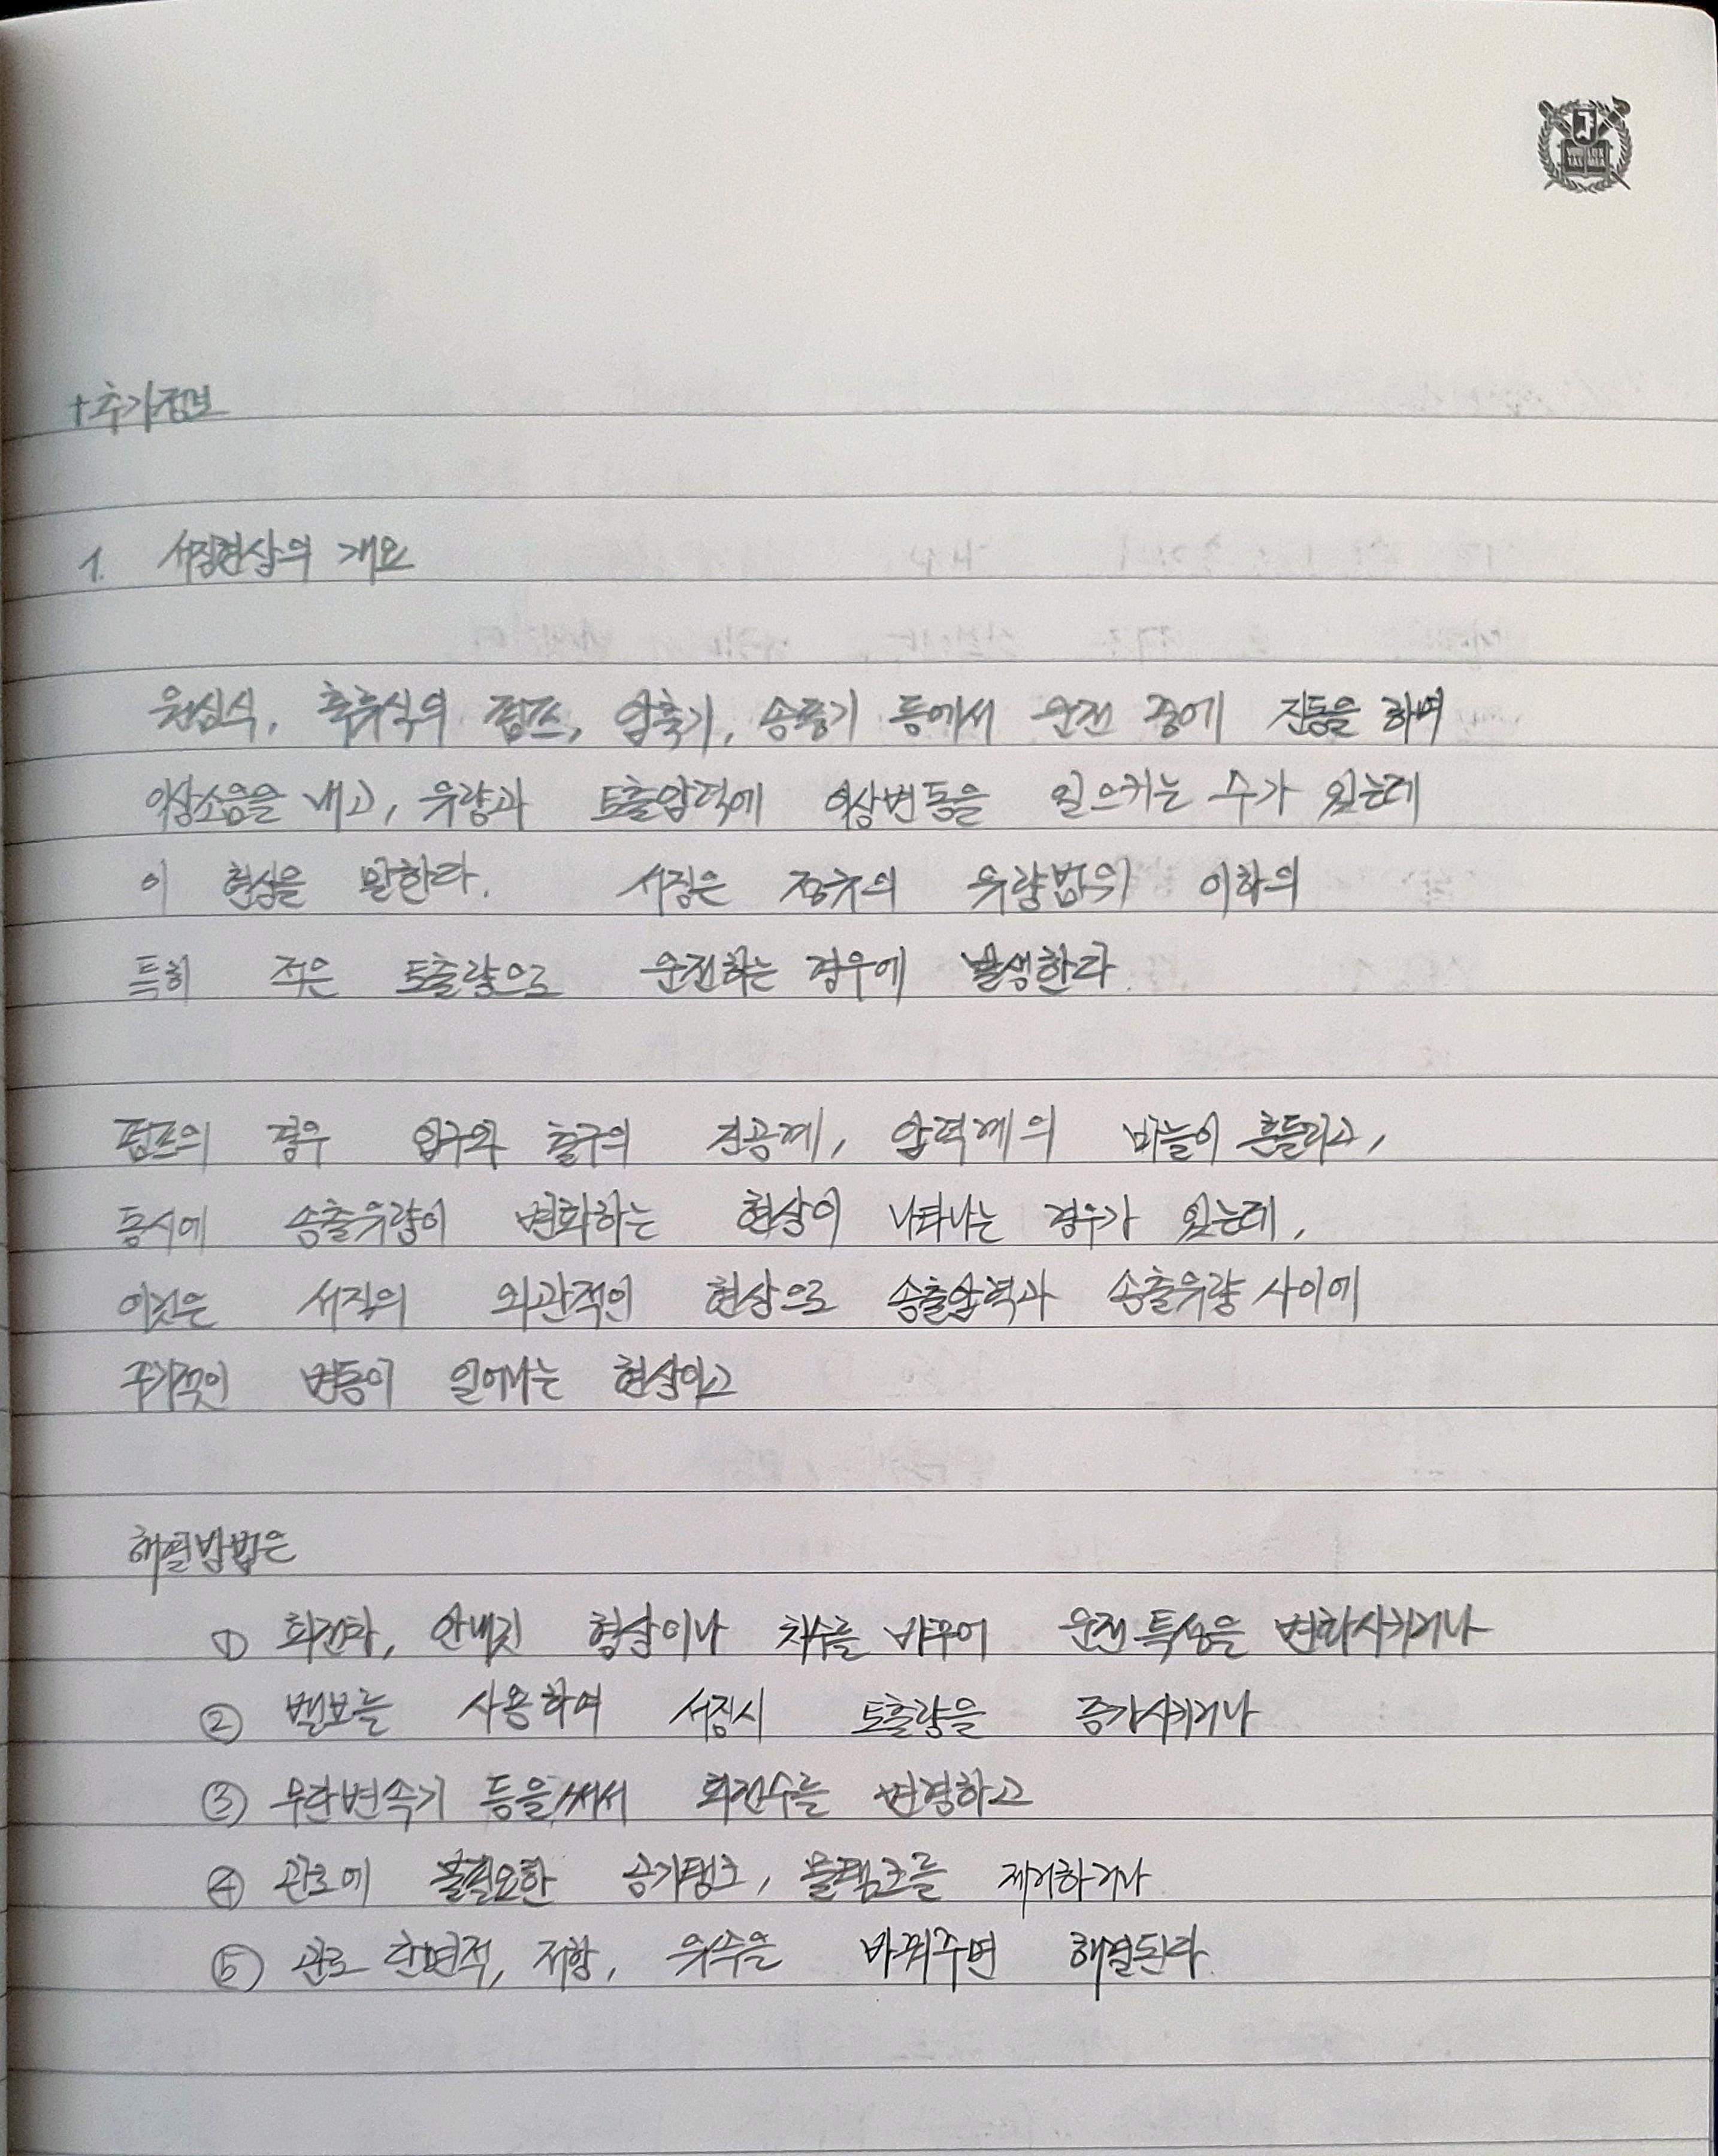 +추가정보
1. 서징현상의 개요
원심식, 축류식의 펌프, 압축기, 송풍기 등에서 운전 중에 진동을 하여
이상소음을 내고, 유량과 토출압력에 이상변동을 일으키는 수가 있는데
이 현상을 말한다. 서징은 정규의 유량범위 이하의
특히 적은 토출량으로 운전하는 경우에 발생한다.
펌프의 경우 입구와 출구의 진공계, 압력계의 바늘이 흔들리고,
동시에 송출유량이 변화하는 현상이 나타나는 경우가 있는데,
이것은 서징의 외관적인 현상으로 송출압력과 송출유량 사이에
주기적인 변동이 일어나는 현상이고
해결방법은
① 회전차, 안내깃 형상이나 치수를 바꾸어 운전특성을 변화시키거나
② 밸브를 사용하여 서징시 토출량을 증가시키거나
③ 무단변속기 등을 써서 회전수를 변경하고
④ 관로에 불필요한 공기탱크, 물탱크를 제거하거나
⑤ 관로 단면적, 저항, 유속을 바꿔주면 해결된다.